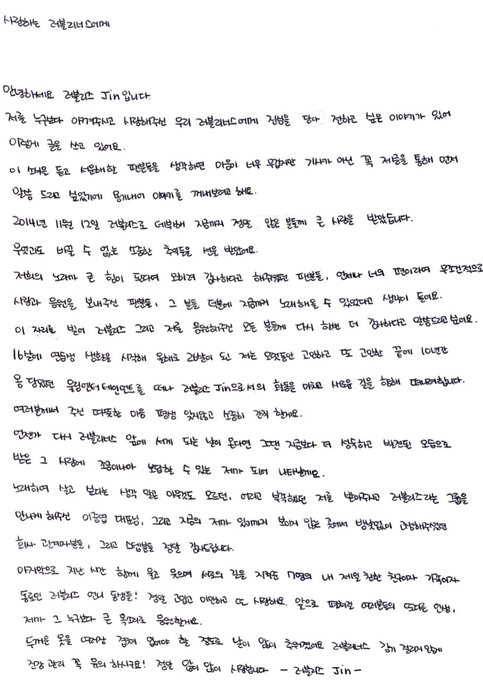 사랑하는 러블리너스에게
안녕하세요 러블리즈 Jin입니다.
저를 누구보다 아껴주시고 사랑해주신 우리 러블리너스에게 진심을 담아 전하고 싶은 이야기가 있어
이렇게 글을 쓰고 있어요.
이 소식을 듣고 서운해할 팬분들을 생각하면 마음이 너무 무겁지만 기사가 아닌 꼭 저를 통해 먼저
말씀 드리고 싶었기에 용기내어 이야기를 꺼내보려고 해요.
2014년 11월 12일 러블리즈로 데뷔해 지금까지 정말 많은 분들께 큰 사랑을 받았습니다.
무엇과도 바꿀 수 없는 소중한 추억들을 선물 받았어요.
저희의 노래가 큰 힘이 된다며 오히려 감사하다고 해주셨던 팬분들, 언제나 너의 편이라며 무조건적으로
사랑과 응원을 보내주신 팬분들, 그 분들 덕분에 지금까지 노래해올 수 있었다고 생각이 들어요.
이 자리를 빌어 러블리즈 그리고 저를 응원해주신 모든 분들께 다시 한번 더 감사하다고 말씀드리고싶어요.
16살에 연습생 생활을 시작해 올해로 26살이 된 저는 오랫동안 고민하고 또 고민한 끝에 10년간
몸 담았던 울림엔터테인먼트를 떠나 러블리즈 Jin으로서의 활동을 마치고 새로운 길을 향해 떠나려합니다.
여러분께서 주신 따뜻한 마음 평생 잊지않고 소중히 간직 할게요.
언젠가 다시 러블리너스 앞에 서게 되는 날이 온다면 그땐 지금보다 더 성숙하고 발전된 모습으로
받은 그 사랑에 조금이나마 보답할 수 있는 제가 되어 나타날게요.
노래하며 살고 싶다는 생각 말고 아무것도 모르던, 어리고 부족했던 저를 받아주시고 러블리즈라는 그룹을
만나게 해주신 이중엽 대표님, 그리고 지금의 제가 있기까지 보이지 않는 곳에서 밤낮없이 고생해주셨던
회사 관계자분들, 그리고 스탭분들 정말 감사드립니다.
마지막으로 지난 시간 함께 울고 웃으며 서로의 길을 지켜준 7명의 내 제일 친한 친구이자 가족이자
동료인 러블리즈 언니 동생들! 정말 고맙고 미안하고 또 사랑해요. 앞으로 펼쳐질 여러분들의 또다른 인생,
제가 그 누구보다 큰 목소리로 응원할게요.
두꺼운 옷을 여러장 껴서 입어야 할 정도로 날이 많이 추워졌어요 러블리너스 감기 걸리지않게
건강 관리 꼭 유의 하시구요! 정말 많이 많이 사랑합니다 - 러블리즈 Jin -